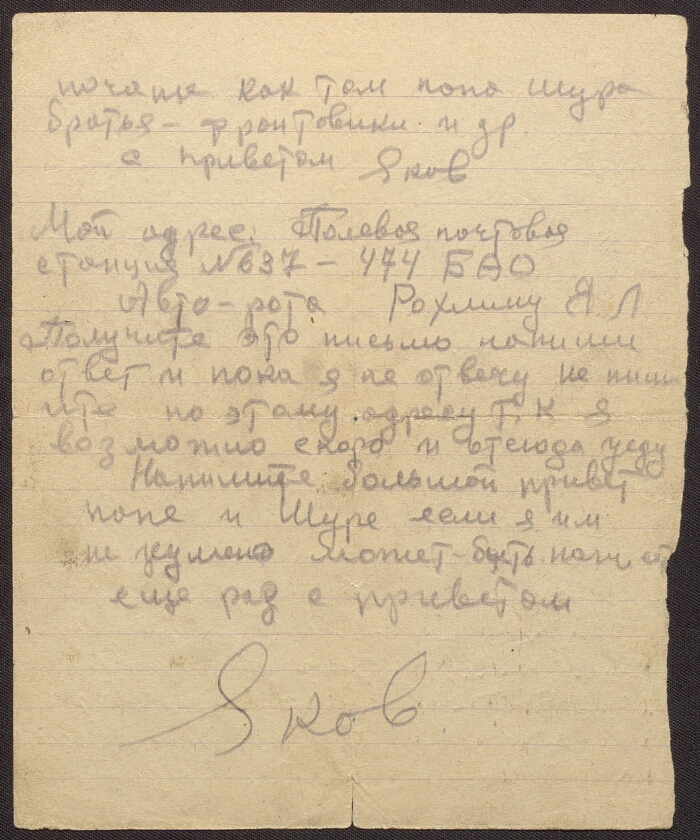 почаще как там папа Шура
братья - фронтовики и др.
с приветом Яков
Мой адрес: Полевая почтовая
станция №637 - 474 БАО
Авто-рота Рохлину Я Л
Получите это письмо напиши
ответ и пока я не отвечу не пиши
ите по этому адресу т.к я
возможно скоро и отсюда уеду
Напишите большой привет
папе и Шуре если я им
не может-быть
еще раз с приветом
Яков